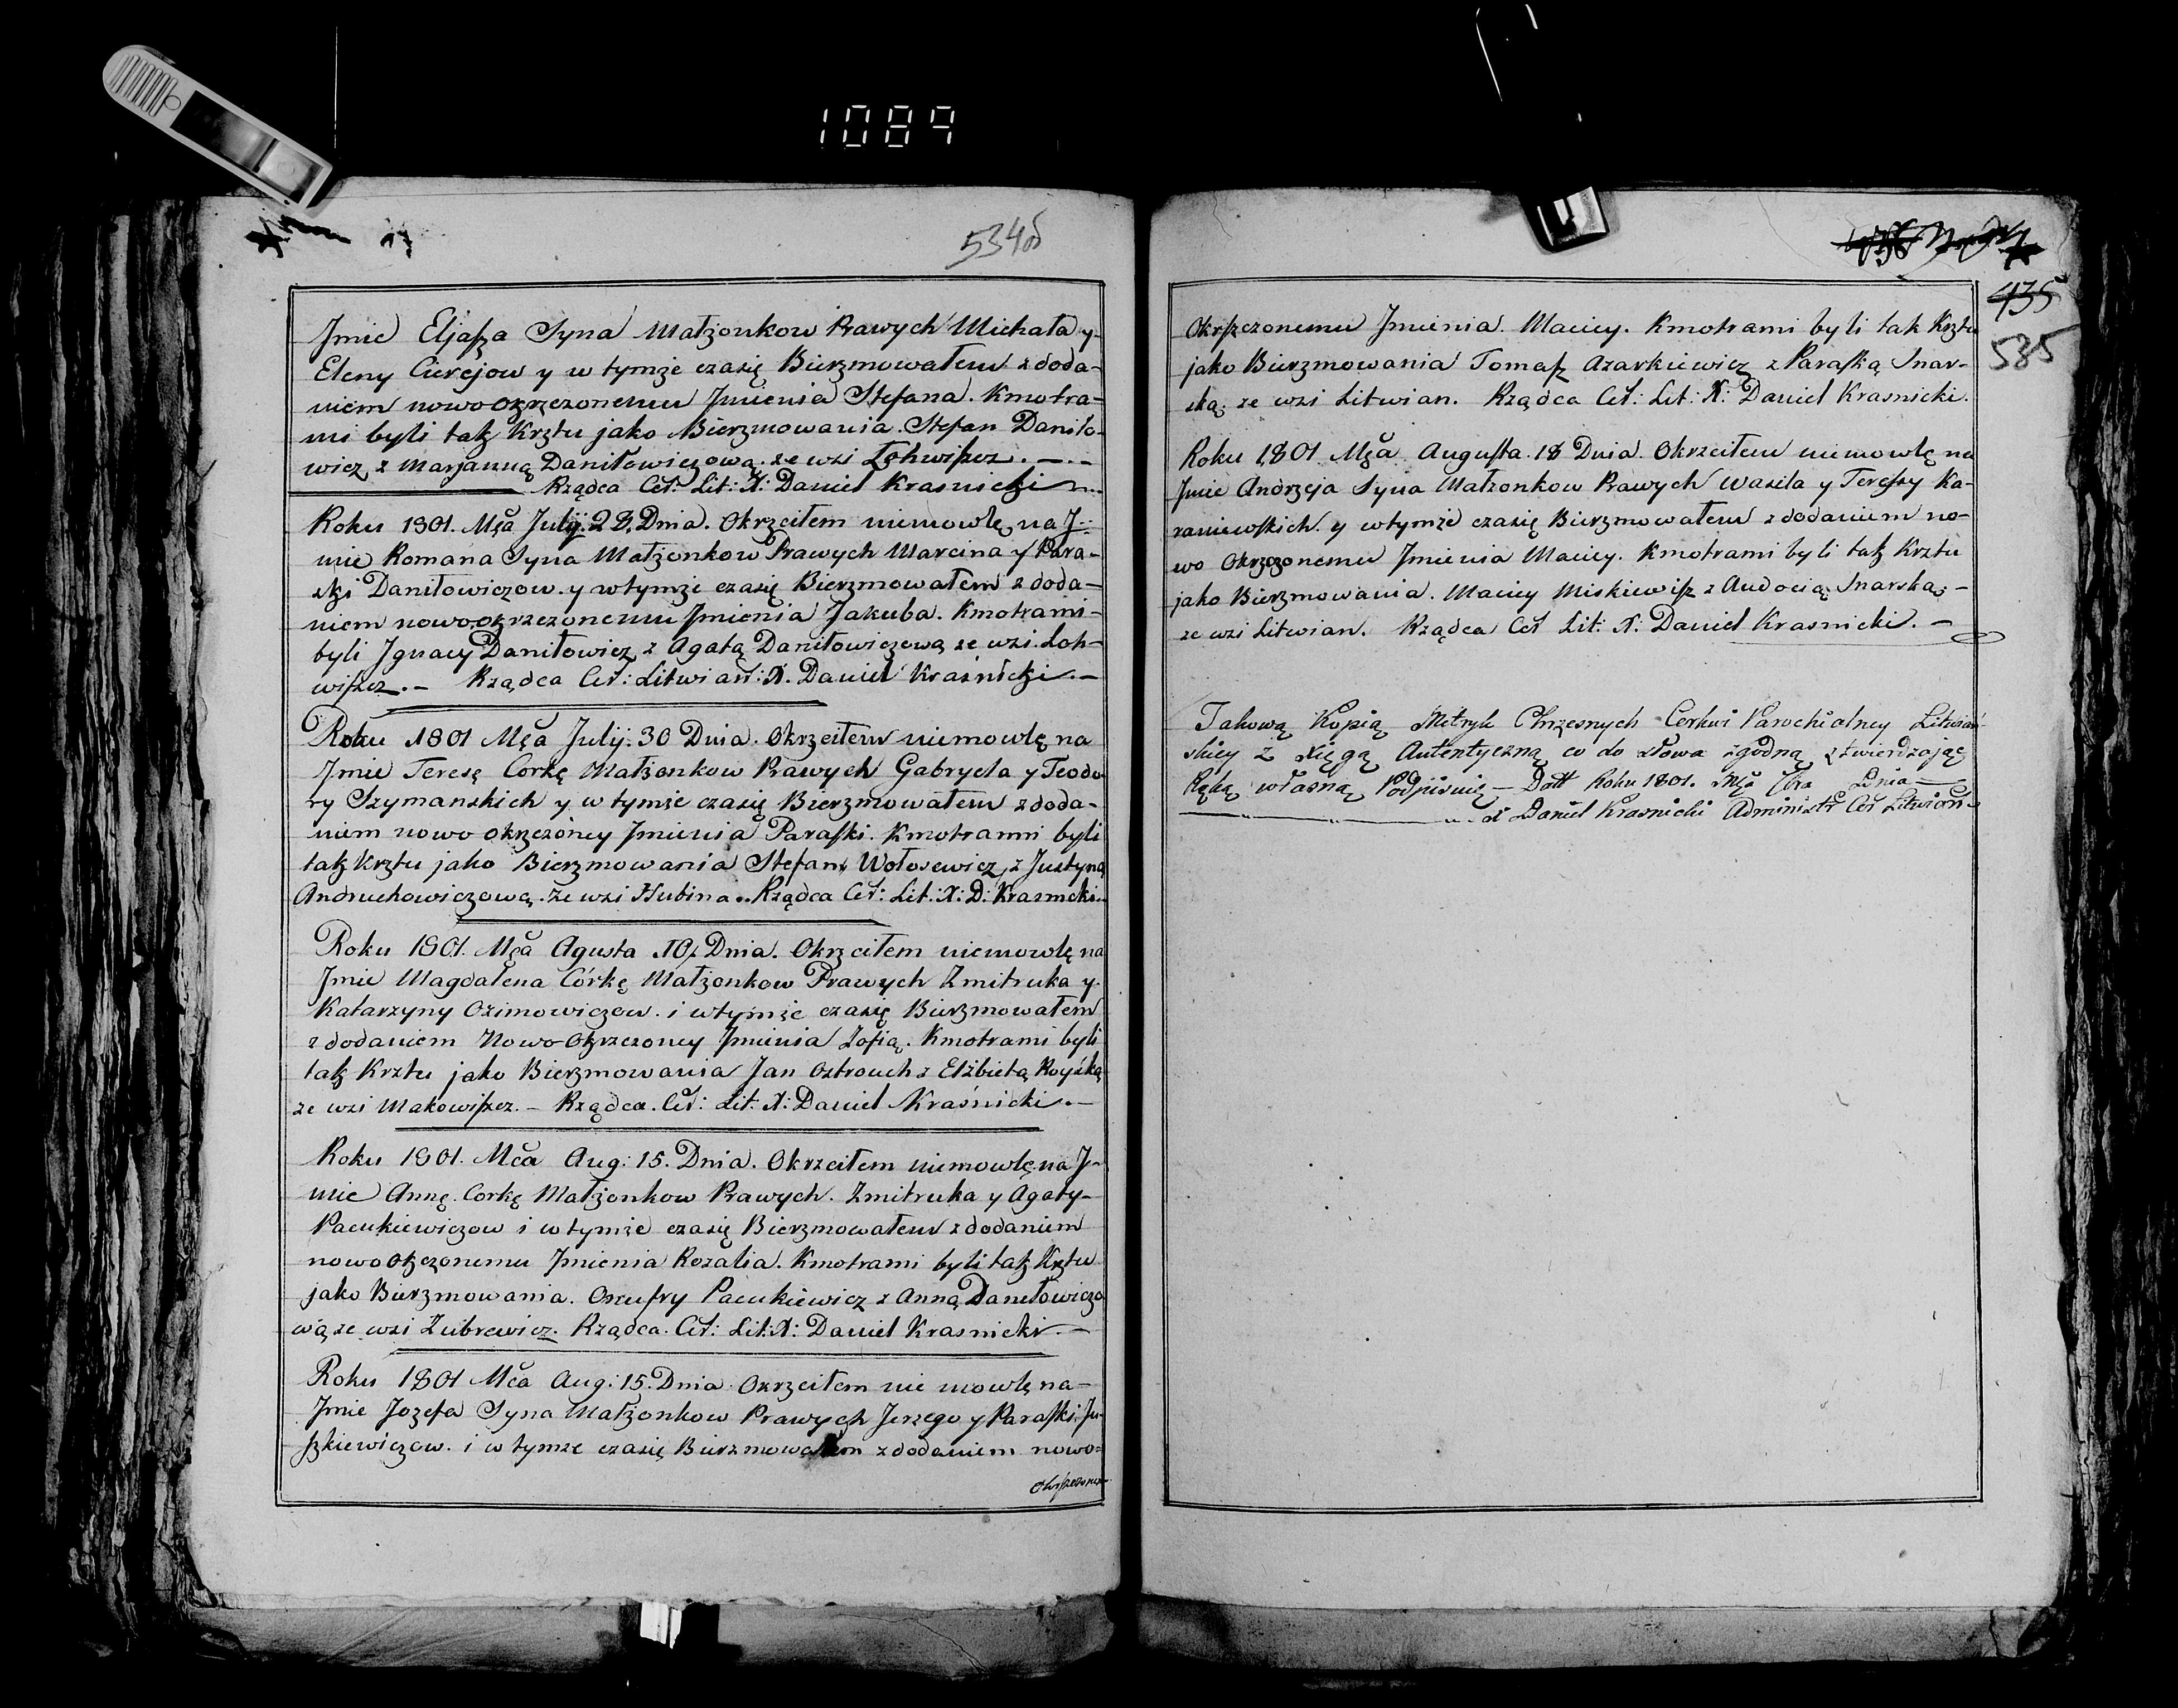 1089
534об
Jmie Eljasza Syna Małżonkow Prawych Michała y
Eleny Cierejow y w tymże czasię Bierzmowałem z doda-
niem nowo okrzczonemu Jmienia Stefana. Kmotra-
mi byli tak Krztu jako Bierzmowania. Stefan Daniło-
wicz z Marjanną Daniłowiczową. ze wsi Łohwiszcz. —
Rządca Cer: Lit: X: Daniel Krasnicki
Roku 1801. Mca Julij. 28. Dnia. Okrzciłem niemowlę na J-
mie Romana Syna Małżonkow Prawych Marcina y Para-
ski Daniłowiczow. y w tymże czasię Bierzmowałem z doda-
niem nowo okrzczonemu Jmienia Jakuba. Kmotrami
byli Jgnacy Daniłowicz z Agatą Daniłowiczową ze wsi. Łoh-
wiszcz. — Rządca Cer: Litwian: X. Daniel Kraśnicki. —
Roku 1801 Mca Julij. 30 Dnia. Okrzciłem niemowlę na
Jmie Teresę Corkę Małżonkow Prawych Gabryela y Teodo-
ry Szymanskich y w tymże czasię Bierzmowałem z doda-
niem nowo okrzczoney Jmienia Paraski. Kmotrami byli
tak Krztu jako Bierzmowania Stefan Wołosewicz z Justyną
Andruchowiczową. Ze wsi Hubina. Rządca Cer: Lit: X: D: Krasnicki
Roku 1801. Mca Agusta 10. Dnia. Okrzciłem niemowlę na
Jmie Magdalena Córkę Małżonkow Prawych Zmitruka y
Katarzyny Ozimowiczow. i w tymże czasię Bierzmowałem
z dodaniem Nowo Okrzczoney Jmienia Zofią. Kmotrami byli
tak Krztu jako Bierzmowania Jan Ostrouch z Elżbietą Royską
ze wsi Makowiszcz. — Rządca. Cer: Lit. X: Daniel Kraśnicki. —
Roku 1801. Mca Aug: 15. Dnia. Okrzciłem niemowlę na J-
mie Annę. Corkę Małżonkow Prawych. Zmitruka y Agaty
Pacukiewiczow i w tymże czasię Bierzmowałem z dodaniem
nowo okrzczonemu Jmienia Rozalia. Kmotrami byli tak Krztu
jako Bierzmowania. Onufry Pacukiewicz z Anną Daniełowiczo
wą ze wsi Zubrewicz. Rządca. Cer: Lit: X: Daniel Krasnicki. —
Roku 1801 Mca Aug: 15. Dnia Okrzciłem nie mowlę na
Jmie Jozefa Syna Małżonkow Prawych Jerzego y Paraski Ju-
szkiewiczow. i w tymże czasię Bierzmowałem z dodaniem nowo=
okrszczonemu
435
535
Okrszczonemu Jmienia. Maciey. Kmotrami byli tak Krztu
jako Bierzmowania Tomasz Azarkiewicz z Paraską Snar-
ską. ze wsi Litwian. Rządca Cer: Lit: X: Daniel Krasnicki.
Roku 1801 Mca Augusta. 18 Dnia. Okrzciłem niemowlę na
Jmie Andrzeja Syna Małżonkow Prawych Wasila y Teressy Ka-
raniewskich. y w tymże czasię Bierzmowałem z dodaniem no-
wo okrzczonemu Jmienia Maciey. Kmotrami byli tak Krztu
jako Bierzmowania. Maciey Miskiewisz z Audocią Snarską. —
ze wsi Litwian. Rządca Cer Lit: X: Daniel Krasnicki. —
Takową Kopią Metryk Chrzesnych Cerkwi Parochialney Litwian
skiey z Xięgą Autentyczną co do słowa zgodną ztwierdzając
Ręką własną Podpisuię — Datt Roku 1801. Mca Dnia —
X Daniel Krasnicki Administr Cer Litwian